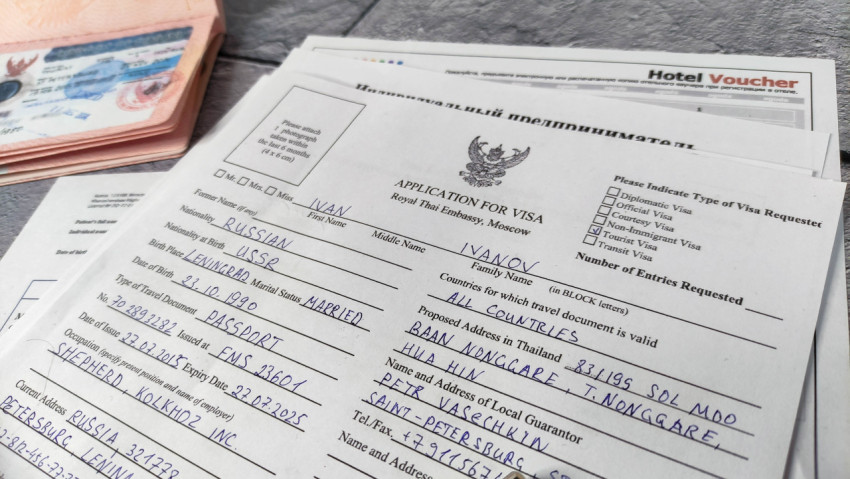 Hotel Voucher
Индивидуальный предприниматель
Please attach
1 photograph
taken within
the last 6 months
(4 x 6 cm)
APPLICATION FOR VISA
Royal Thai Embassy, Moscow
Please Indicate Type of Visa Requested
Diplomatic Visa
Official Visa
Courtesy Visa
Non-Immigrant Visa
Tourist Visa
Transit Visa
Number of Entries Requested
Mr. Mrs. Miss IVAN IVANOV
First Name Middle Name Family Name (in BLOCK letters)
Former Name (if any)
Nationality RUSSIAN
Nationality at Birth USSR
Birth Place LENINGRAD Marital Status MARRIED
Date of Birth 23.10.1990
Type of Travel Document PASSPORT
No. 702897282 Issued at FMS 23601
Date of Issue 27.07.2015 Expiry Date 27.07.2025
Occupation (specify present position and name of employer)
SHEPHERD, KOLKHOZ INC.
Current Address RUSSIA 321778
PETERSBURG, LENIN
Countries for which travel document is valid
ALL COUNTRIES
Proposed Address in Thailand 83/195 SOL MOO
BAAN NONGGARE, T. NONGGARE,
HUA HIN
Name and Address of Local Guarantor
PETR VASECHKYN
SAINT-PETERSBURG
Tel./Fax. +7911567
Name and Address